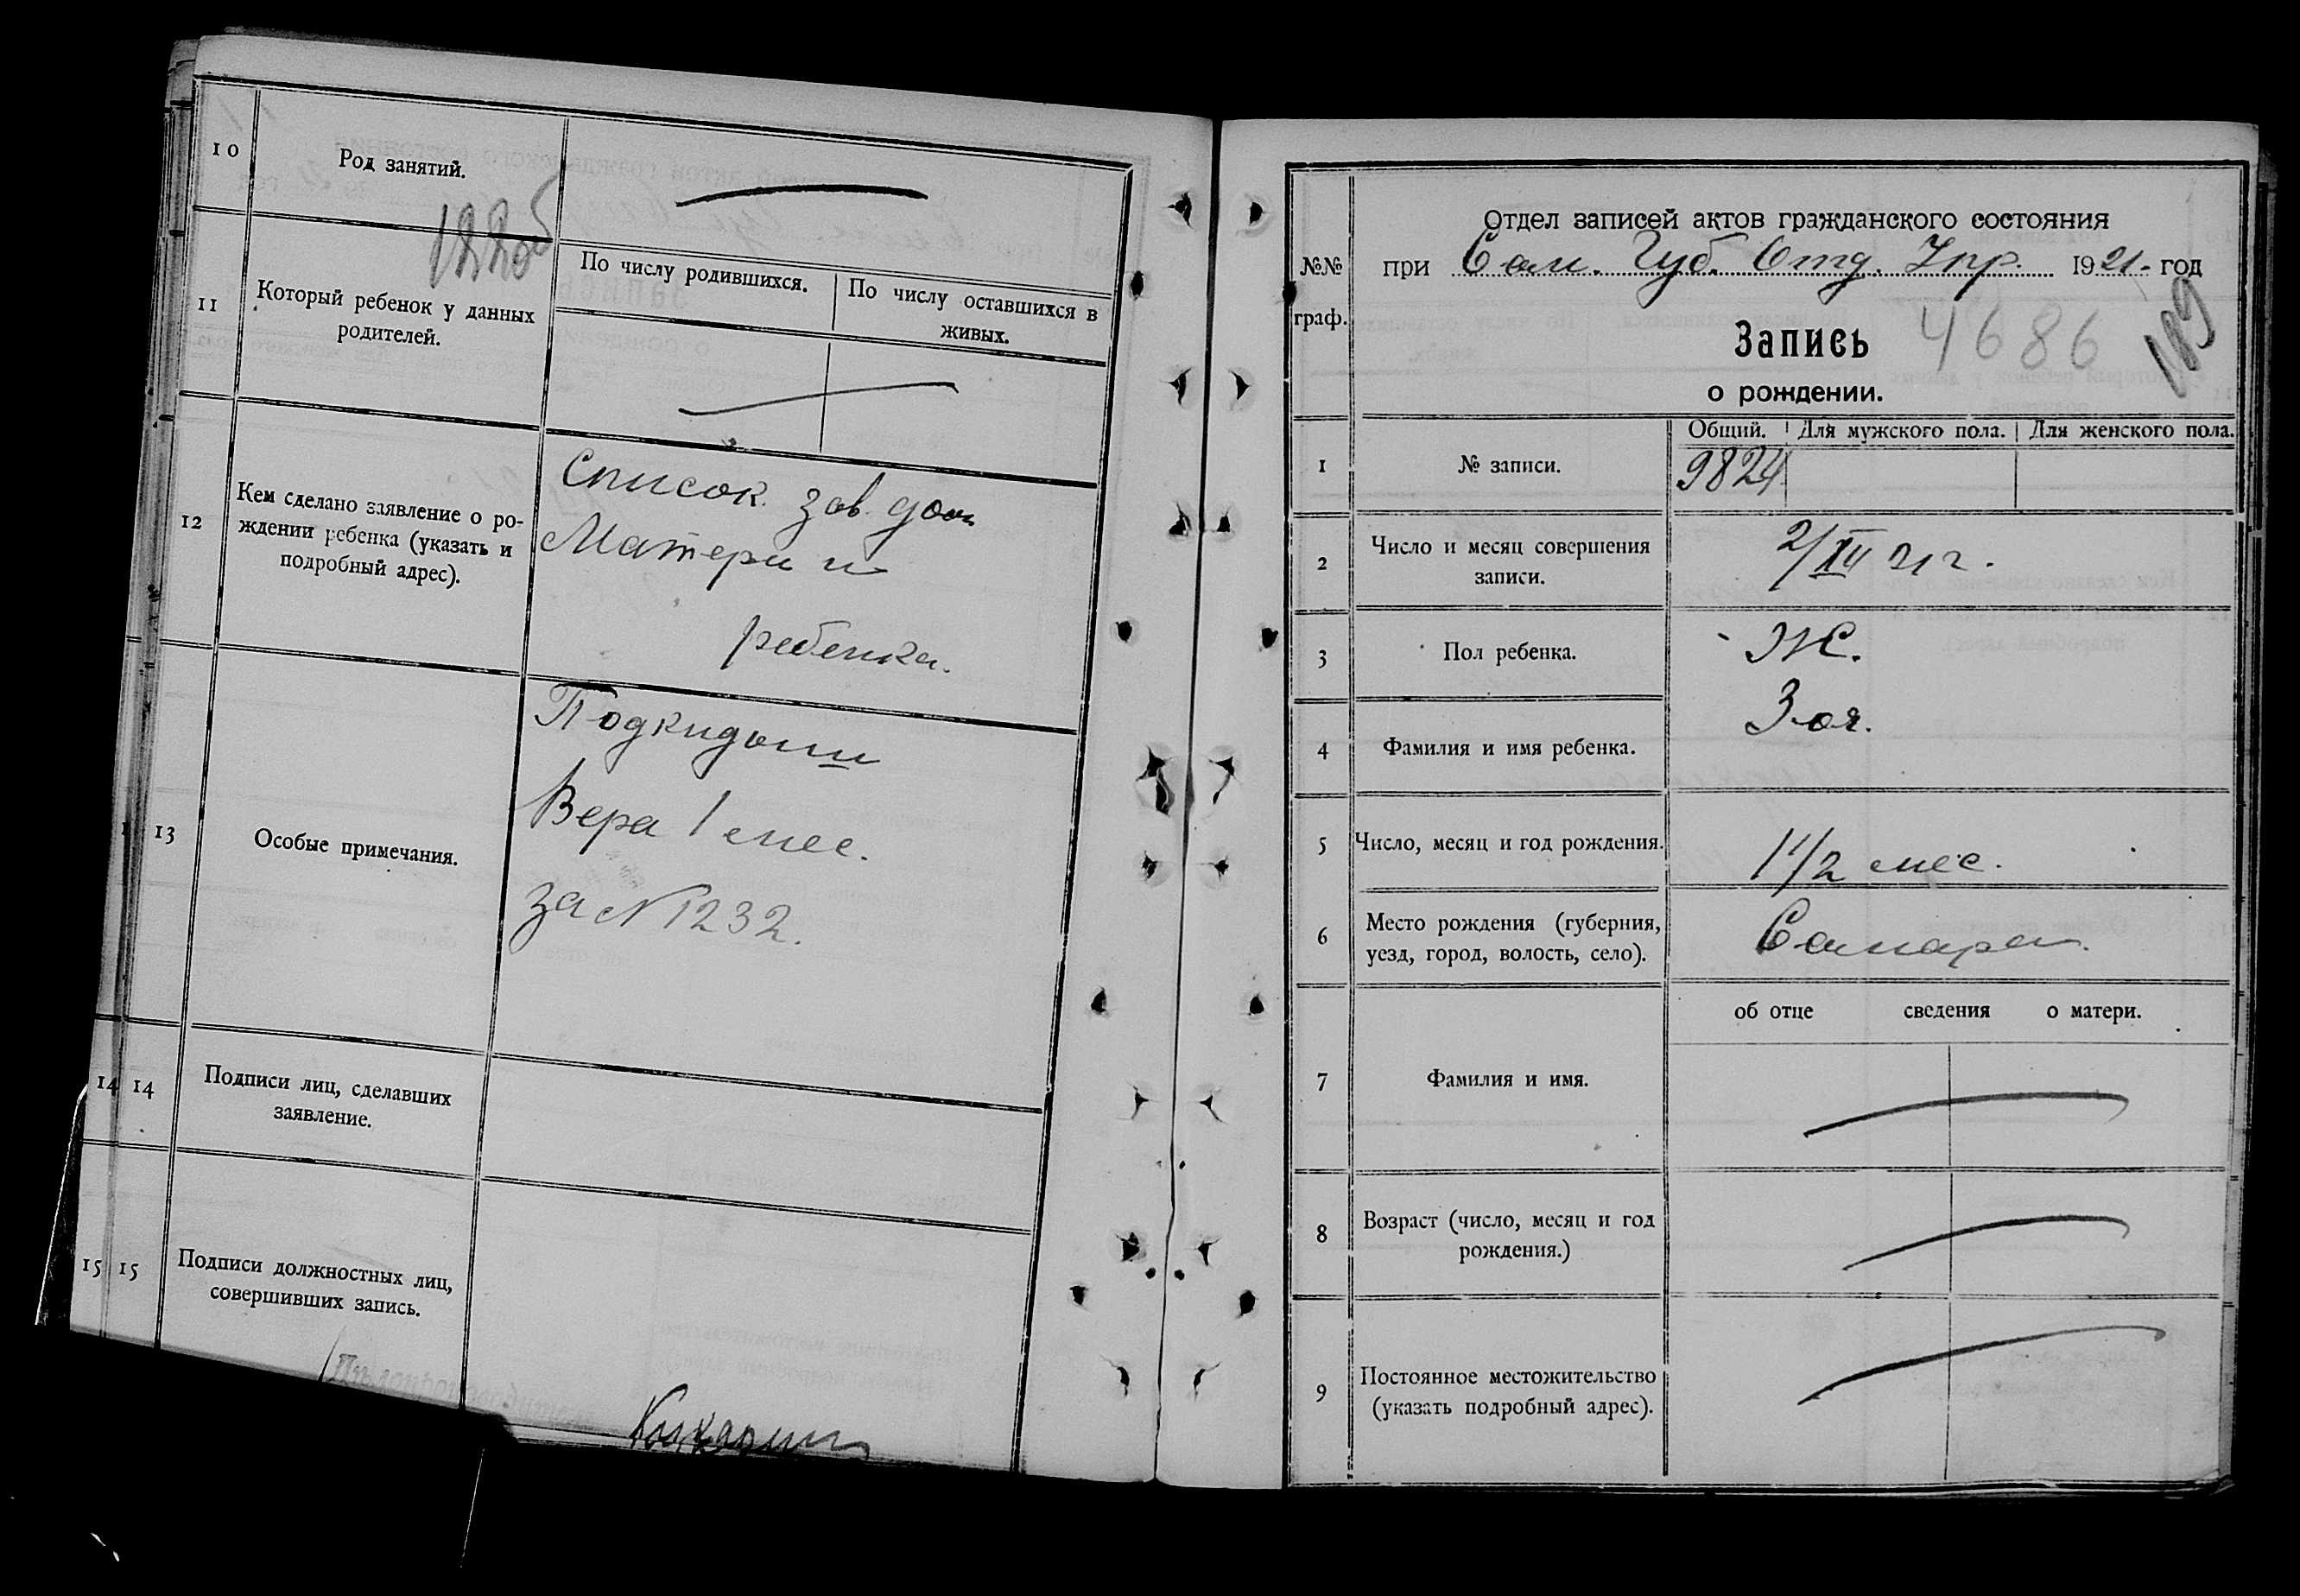 10
Род занятий.
11
Который ребенок у данных
родителей.
По числу родившихся.
По числу оставшихся в
живых.
12
Кем сделано заявление о ро-
ждении ребенка (указать и
подробный адрес).
Список зав. дом
Матери и
ребенка.
13
Особые примечания.
Подкидыш
Вера 1 мес.
за N 1232.
14 14
Подписи лиц, сделавших
заявление.
15 15
Подписи должностных лиц,
совершивших запись.
№№
граф.
Отдел записей актов гражданского состояния
при Сам. Губ. Отд. Упр. 1921. год
Запись 4686
о рождении.
189
1
№ записи.
Общий. Для мужского пола. Для женского пола.
9824
2
Число и месяц совершения
записи.
21 г.
3
Пол ребенка.
Ж.
4
Фамилия и имя ребенка.
Зоя.
5
Число, месяц и год рождения.
1 1/2 мес.
6
Место рождения (губерния,
уезд, город, волость, село).
Самара.
об отце сведения о матери.
7
Фамилия и имя.
8
Возраст (число, месяц и год
рождения.)
9
Постоянное местожительство
(указать подробный адрес).